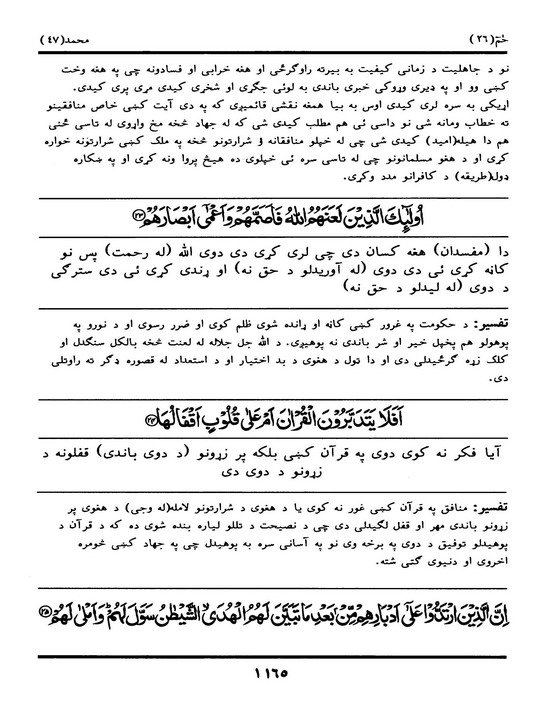 حٰمٓ(٢٦)
محمد(٤٧)
نو د جاهليت د زمانې كيفيت به بيرته راوګرځى او هغه خرابى او فسادونه چې په هغه وخت
كښې وو او په ډيرى وړوكى خبرى باندى به لوئى جګړى او شخړى كيدى مړى پرى كيدى.
اړيكى به سره لرى كيدى اوس به بيا همغه نقشې قائميږى كه په دى آيت كښې خاص منافقينو
ته خطاب ومانه شى نو داسى ئى هم مطلب كيدى شى كه له جهاد څخه مخ واړوى له تاسى ځنى
هم دا هيله(اميد) كيدى شى چې له خپلو منافقانه ؤ شرارتونو څخه په ملک كښې شرارتونه خواره
كړى او د هغو مسلمانونو چې له تاسى سره ئى خپلوى ده هيڅ پروا ونه كړى او په ښكاره
ډول(طريقه) د كافرانو مدد وكړى.
اُولٰٓئِكَ الَّذِيْنَ لَعَنَهُمُ اللّٰهُ فَاَصَمَّهُمْ وَاَعْمٰٓى اَبْصَارَهُمْ ﴿٢٣﴾
دا (مفسدان) هغه كسان دى چې لرى كړى دى دوى الله (له رحمت) پس نو
كاڼه كړى ئى دى دوى (له آوريدلو د حق نه) او ړندى كړى ئى دى سترګى
د دوى (له ليدلو د حق نه)
تفسير: د حكومت په غرور كښې كاڼه او ړانده شوى ظلم كوى او ضرر رسوى او د نورو په
پوهولو هم پخپل خير او شر باندى نه پوهيږى. د الله جل جلاله له لعنت څخه بالكل سنګدل او
كلک زړه ګرځيدلى دى او دا ټول د هغوى د بد اختيار او د استعداد له قصوره ډګر ته راوتلى
دى.
اَفَلَا يَتَدَبَّرُوْنَ الْقُرْاٰنَ اَمْ عَلٰى قُلُوْبٍ اَقْفَالُهَا ﴿٢٤﴾
آيا فكر نه كوى دوى په قرآن كښې بلكه پر زړونو (د دوى باندى) قفلونه د
زړونو د دوى دى
تفسير: منافق په قرآن كښې غور نه كوى يا د هغوى د شرارتونو لامله(له وجى) د هغوى پر
زړونو باندى مهر او قفل لګيدلى دى چې د نصيحت د تللو لياره بنده شوى ده كه د قرآن د
پوهيدلو توفيق د دوى په برخه وى نو په آسانى سره به پوهيدل چې په جهاد كښې څومره
اخروى او دنيوى ګټى شته.
اِنَّ الَّذِيْنَ ارْتَدُّوْا عَلٰٓى اَدْبَارِهِمْ مِّنْۢ بَعْدِ مَا تَبَيَّنَ لَهُمُ الْهُدَى الشَّيْطٰنُ سَوَّلَ لَهُمْ وَاَمْلٰى لَهُمْ ﴿٢٥﴾
١١٦٥